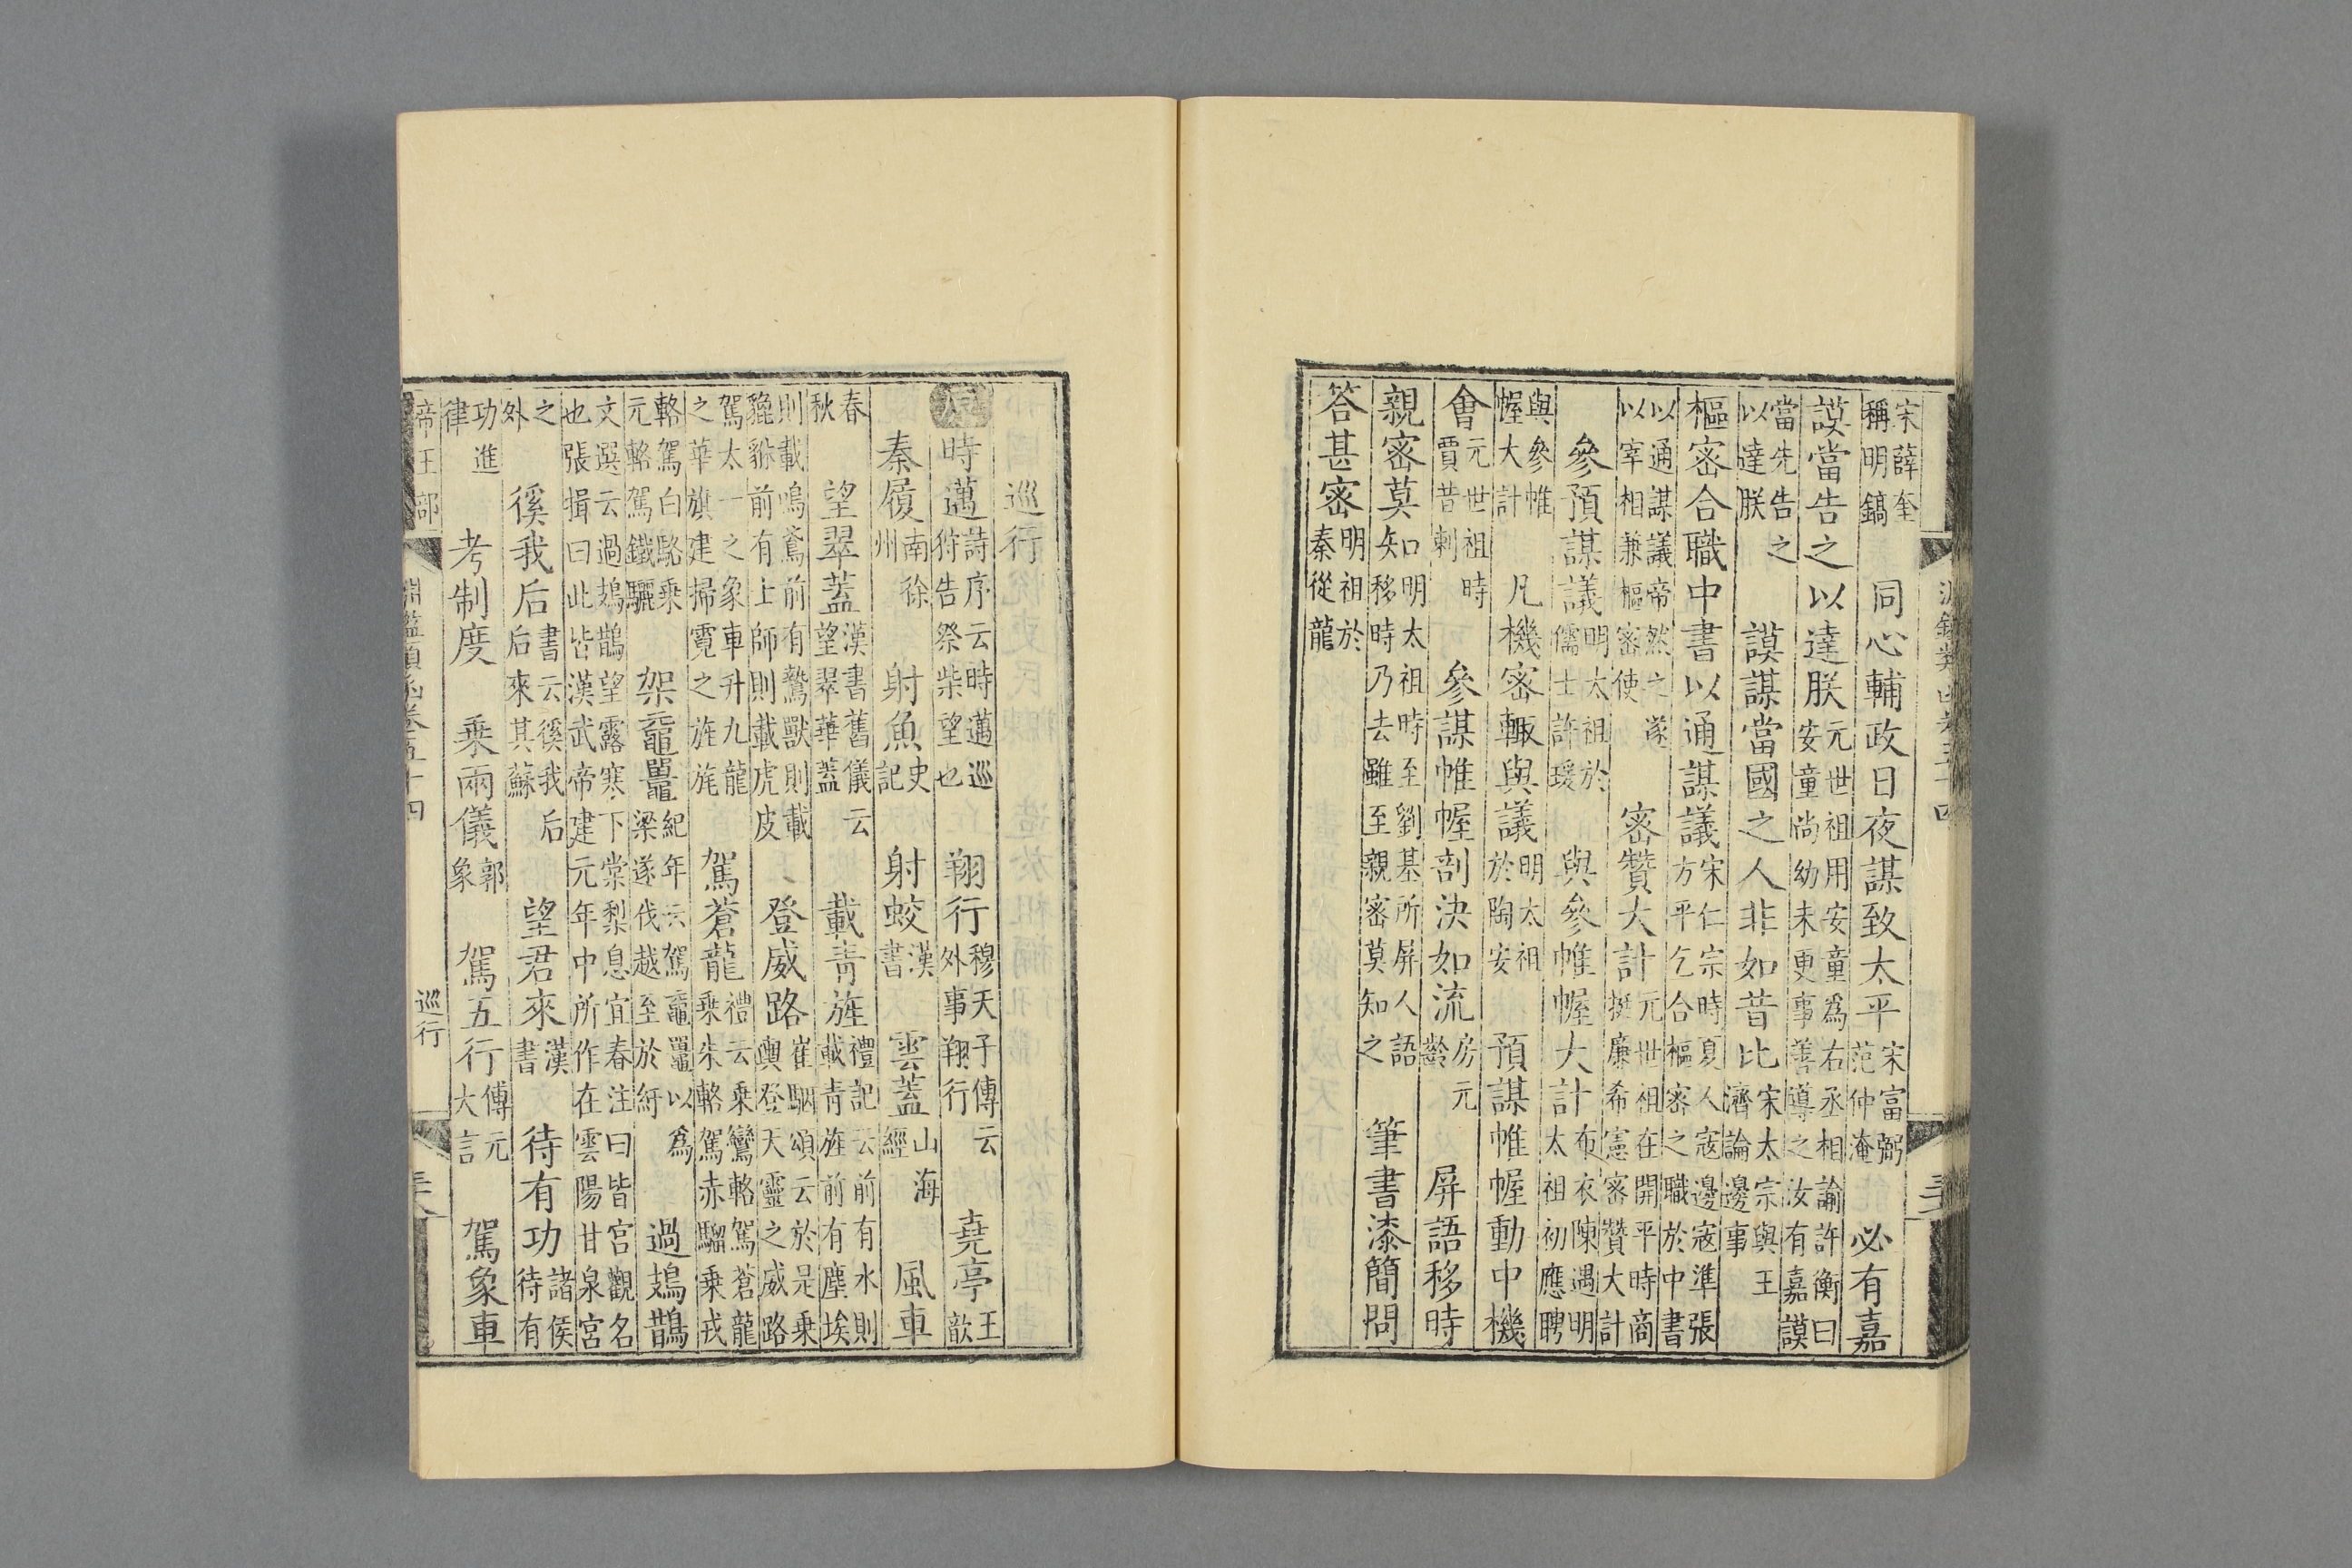 宋薛奎
稱明鎬
同心輔政日夜謀致太平
宋富弼
范仲淹
必有嘉
謨當告之以達朕
元世祖用安童爲右丞相諭許衡曰
安童尚幼未更事善導之汝有嘉謨
當先告之
以達朕
謨謀當國之人非如昔比
宋太宗與王
濟論邊事
樞密合職中書以通謀議
宋仁宗時夏人寇邊寇準張
方平乞合樞密之職於中書
以通謀議帝然之遂
以宰相兼樞密使
密贊大計
元世祖在開平時商
挺廉希憲密贊大計
參預謀議
明太祖於
儒士許瑗
與參帷幄大計
布衣陳遇明
太祖初應聘
與參帷
幄大計
凡機密輙與議
明太祖
於陶安
預謀帷幄動中機
會
元世祖時
賈昔剌
參謀帷幄剖決如流
房元
齡
屏語移時
親密莫知
明太祖時至劉基所屏人語
移時乃去雖至親密莫知之
筆書漆簡問
答甚密
明祖於
秦從龍
巡行
時邁
詩序云時邁巡
狩告祭柴望也
翔行
穆天子傳云
外事翔行
堯亭
王
歆
秦履
南徐
州
射魚
史
記
射蛟
漢
書
雲蓋
山海
經
風車
春
秋
望翠蓋
漢書舊儀云
望翠華蓋
載青旌
禮記云前有水則
載青旌前有塵埃
則載鳴鳶前有鷙獸則載
貔貅前有士師則載虎皮
登威路
崔駰頌云於是乗
輿登天靈之威路
駕太一之象車升九龍
之華旗建掃霓之旌旄
駕蒼龍
禮云乗鸞輅駕蒼龍
乗朱輅駕赤騮乗戎
輅駕白駱乗
元輅駕鐵驪
架黿鼉
紀年云駕黿鼉以爲
梁遂伐越至於紆
過鳷鵲
文選云過鳷鵲望露寒下棠梨息宜春注曰皆宮觀名
也張揖曰此皆漢武帝建元年中所作在雲陽甘泉宮
之
外
徯我后
書云徯我后
后來其蘇
望君來
漢
書
待有功
諸侯
待有
功進
律
考制度
乗兩儀
郭
象
駕五行
傅元
大言
駕象車
帝王部
淵鑑類函卷五十四
巡行